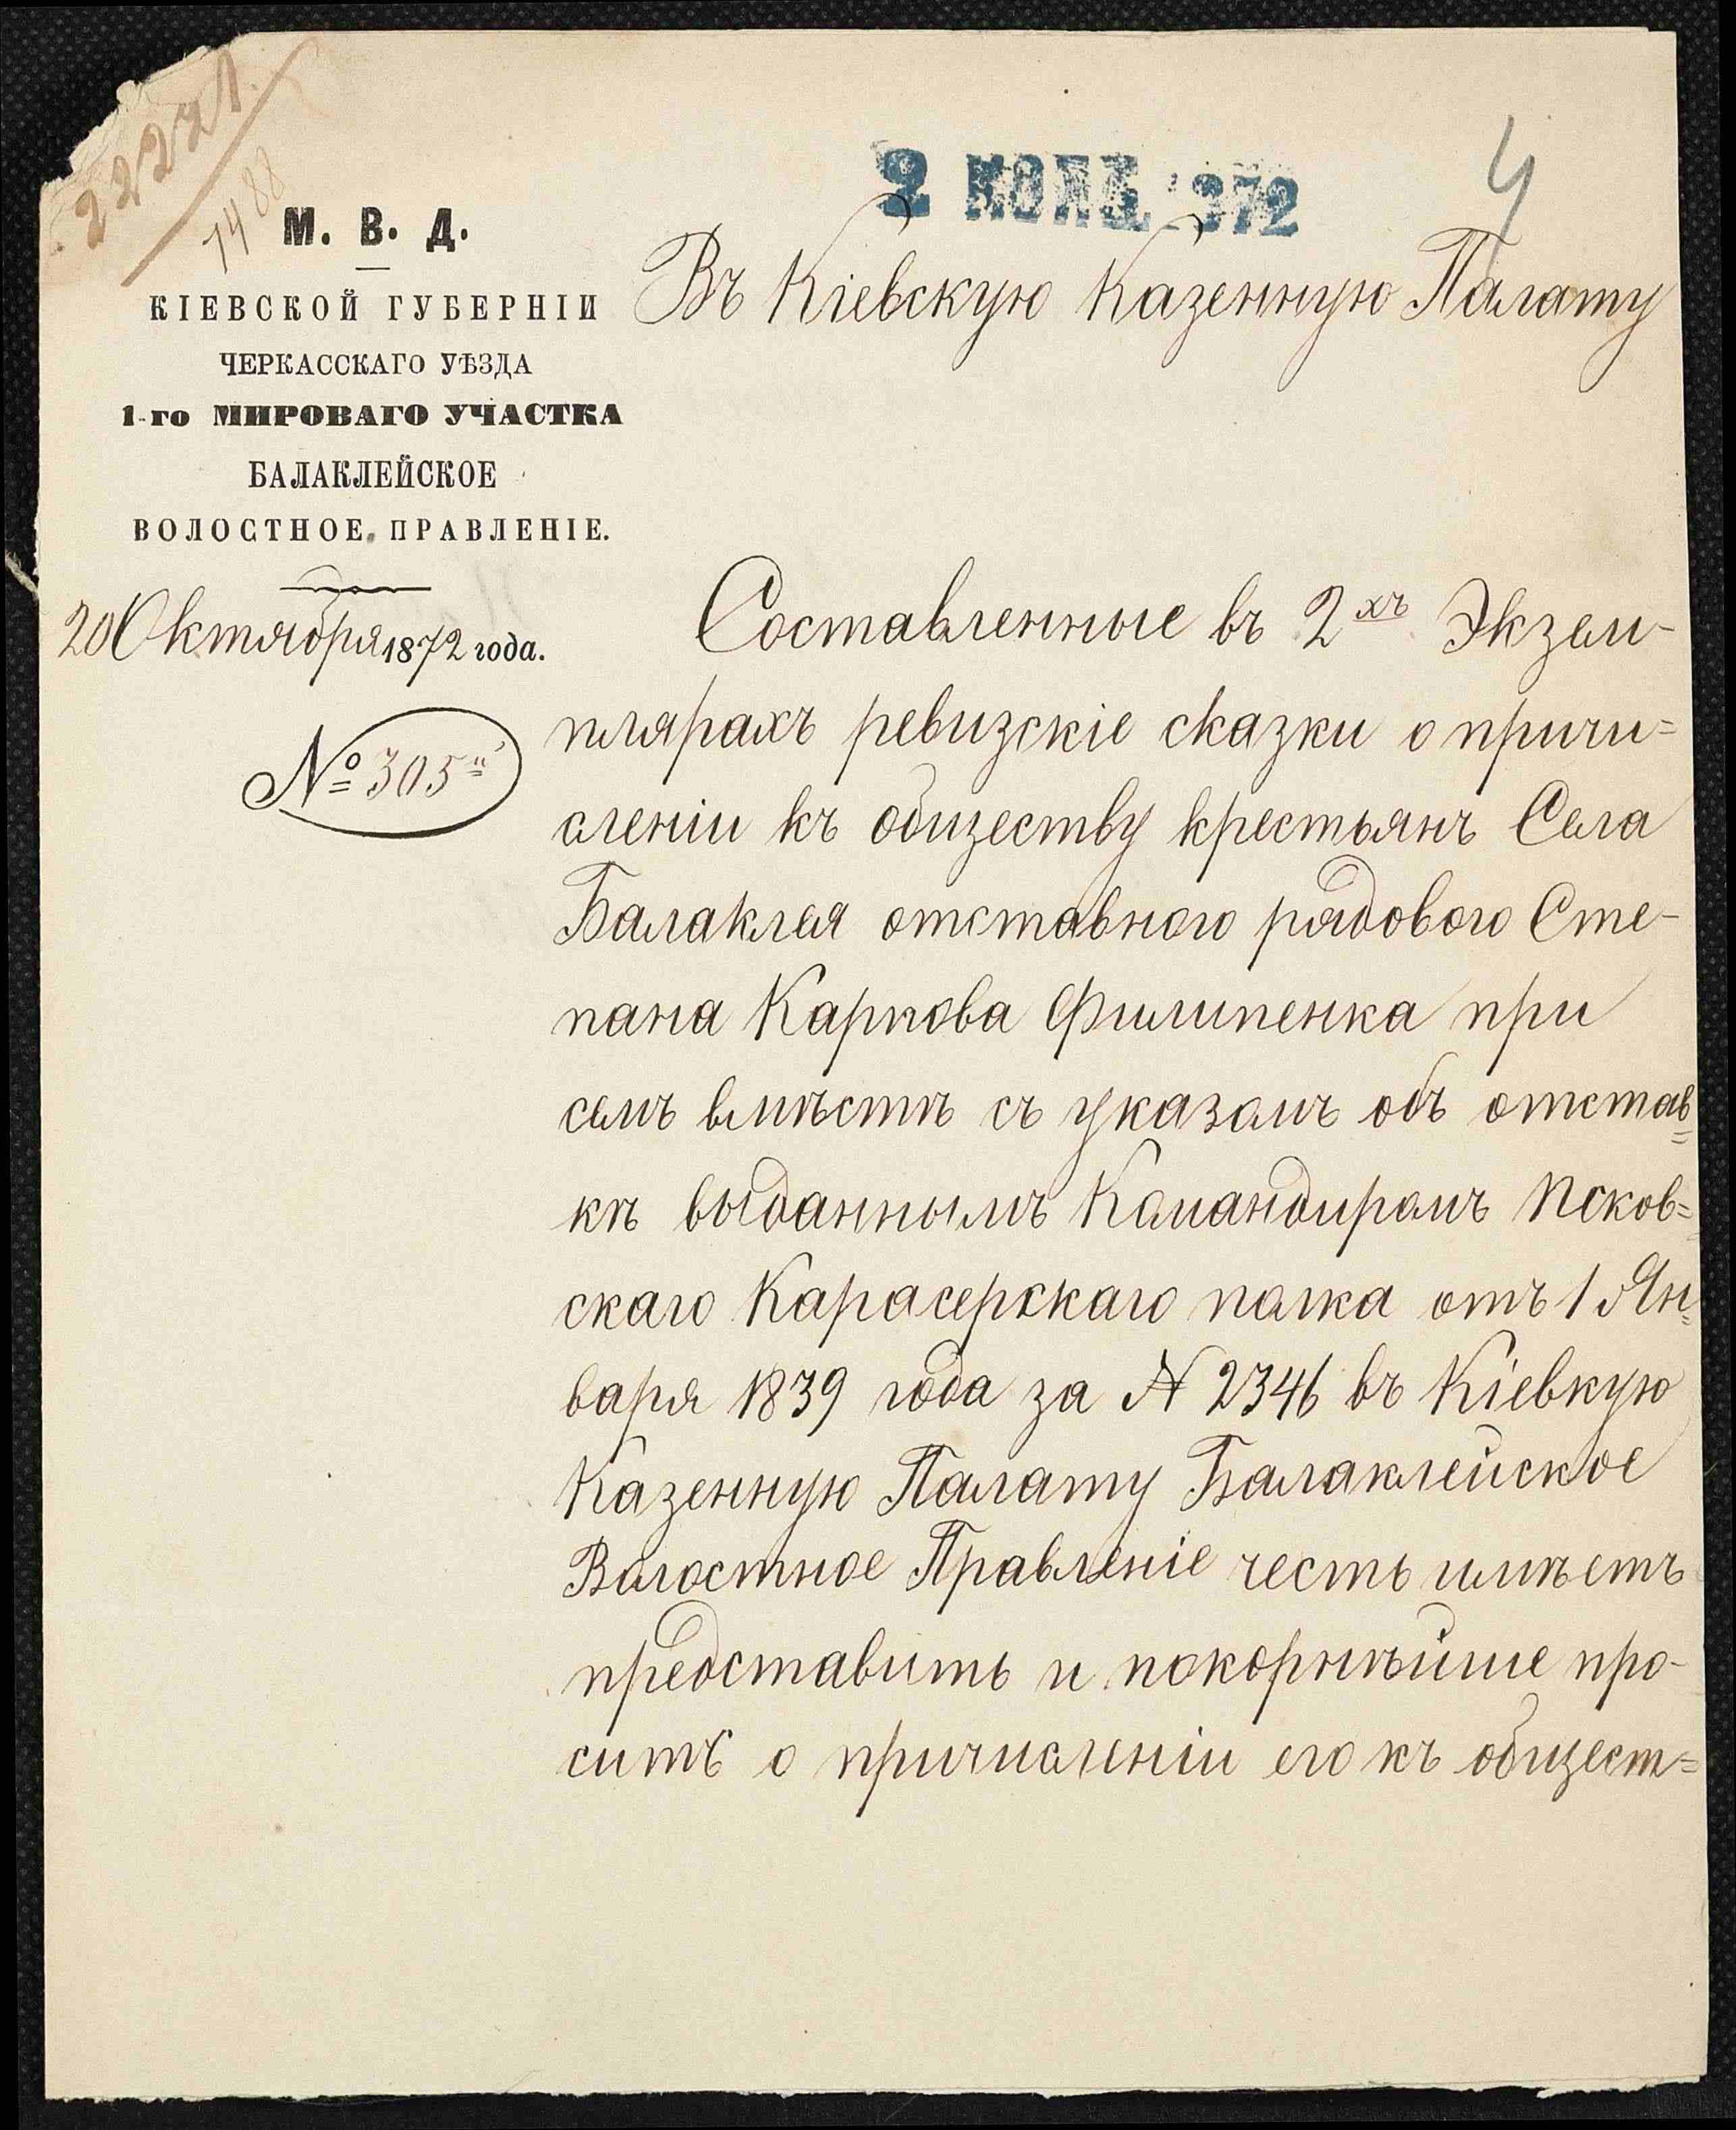 22271
1488
2 НОЯБ. 1872
4
М. В. Д.
КІЕВСКОЙ ГУБЕРНІИ
ЧЕРКАССКАГО УѢЗДА
1-го МИРОВАГО УЧАСТКА
БАЛАКЛЕЙСКОЕ
ВОЛОСТНОЕ ПРАВЛЕНІЕ.
20 Октября 1872 года.
№ 305
Въ Кіевскую Казенную Палату
Составленные въ 2хъ Экзем-
плярахъ ревизскіе сказки о причи=
сленіи къ обществу крестьянъ Села
Балаклея отставного рядового Сте-
пана Карпова Филипенка при
семъ вмѣстѣ съ указомъ объ отстав=
кѣ выданнымъ Командиромъ Псков=
скаго Карасерскаго полка отъ 1 Ян=
варя 1839 года за № 2346 въ Кіевкую
Казенную Палату Балаклейское
Волостное Правленіе честь имѣетъ
представить и покорнѣйше про-
ситъ о причисленіи его къ общест=